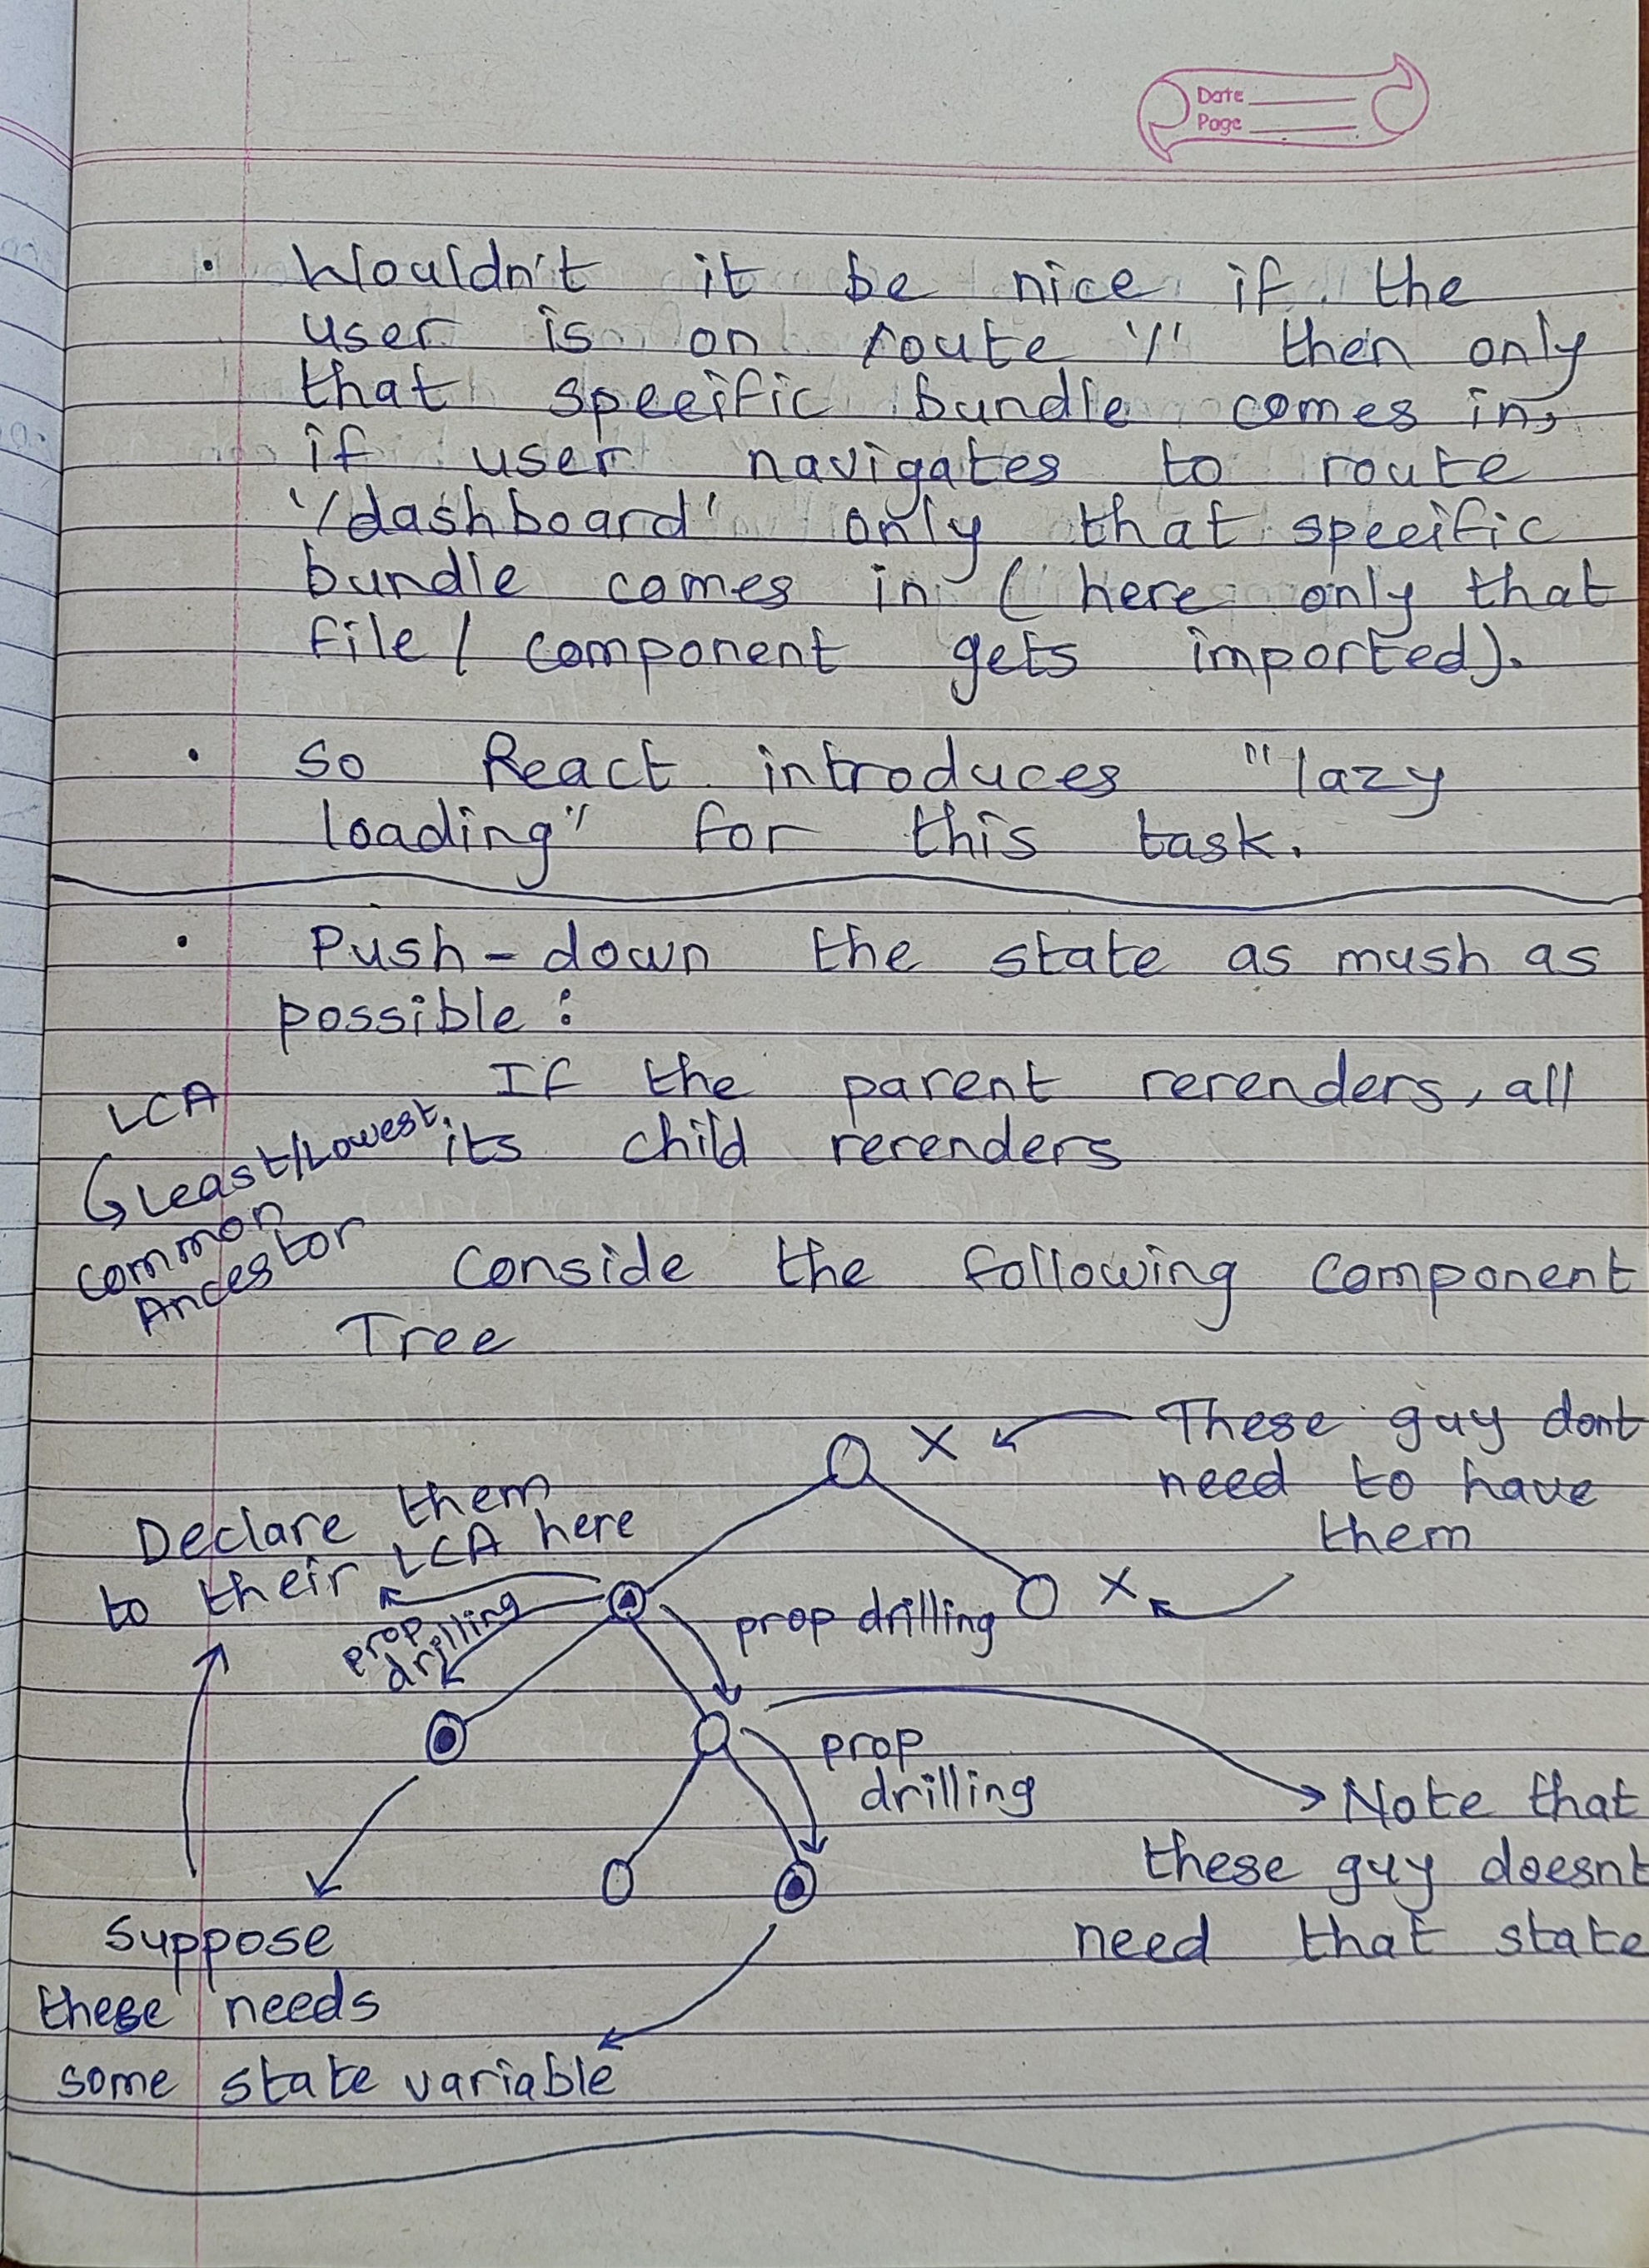 Date
Page
• Wouldn't it be nice if the
user is on route '/' then only
that specific bundle comes in,
if user navigates to route
'/dashboard' only that specific
bundle comes in ( here only that
file / component gets imported).
• So React introduces "lazy
loading" for this task.
• Push-down the state as mush as
possible :
If the parent rerenders, all
its child rerenders
LCA
Least/Lowest
Common
Ancestor
Conside the following Component
Tree
X
These guy dont
need to have
them
Declare them
to their LCA here
X
prop
drilling
prop drilling
prop
drilling
Note that
these guy doesnt
need that state
Suppose
these needs
some state variable